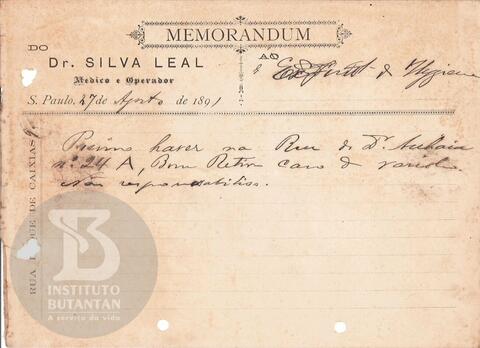 MEMORANDUM
DO
Dr. SILVA LEAL
Medico e Operador
S. Paulo, 27 de Agosto de 1891
AO
de Hygiene
haver na Rua do Dr.
nº 24 A, Bom Retiro caso de variola.
RUA DUQUE DE CAXIAS 9
INSTITUTO
BUTANTAN
A serviço da vida